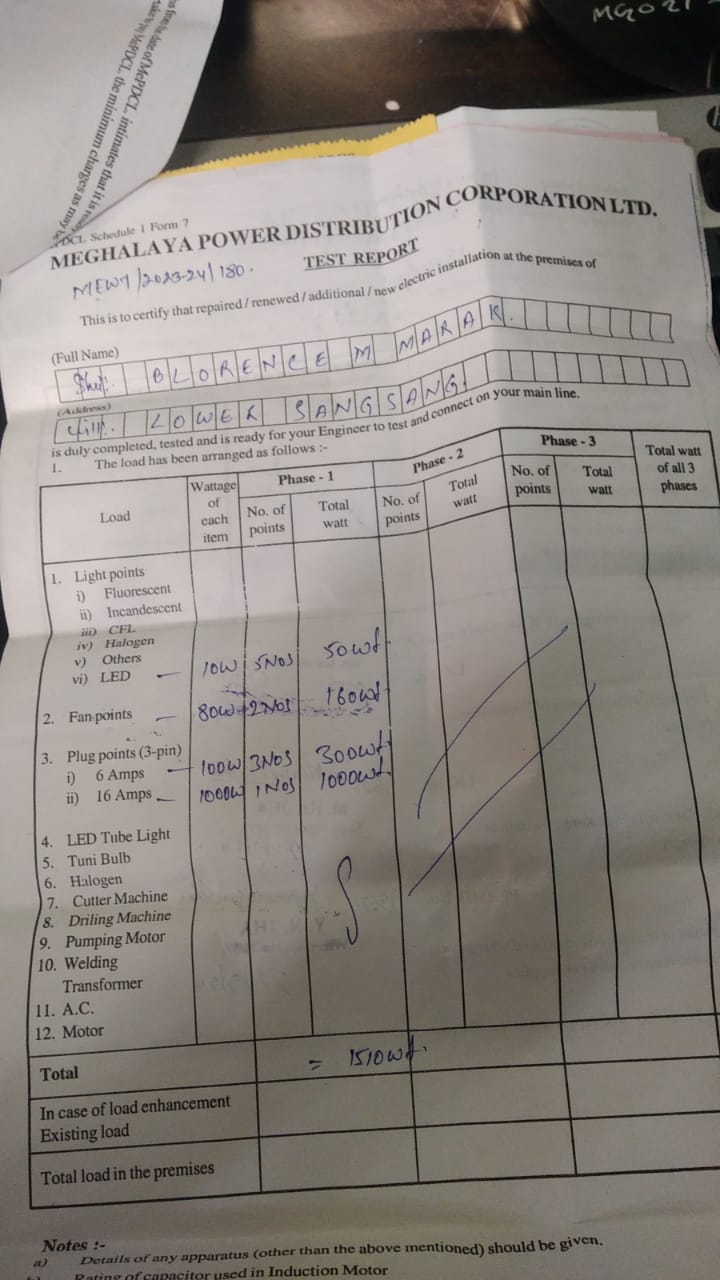 MG021
s from the date of MePDCL, intimates that it is ready
take to pay MePDCL, the minimum charges as may be
PDCL Schedule 1 Form 7
MEGHALAYA POWER DISTRIBUTION CORPORATION LTD.
MEW1/2023-24/180.
TEST REPORT
This is to certify that repaired / renewed / additional / new electric installation at the premises of
(Full Name)
Shut. BLORENCE M MARAK.
(Address)
Vill. LOWER SANGSANG.
is duly completed, tested and is ready for your Engineer to test and connect on your main line.
1. The load has been arranged as follows :-
Load Wattage of each item Phase - 1 Phase - 2 Phase - 3 Total watt of all 3 phases
No. of points Total watt No. of points Total watt No. of points Total watt
1. Light points
i) Fluorescent
ii) Incandescent
iii) CFL
iv) Halogen
v) Others
vi) LED — 10W 5NOS 50wt
2. Fan points — 80W 2NOS 160wt
3. Plug points (3-pin)
i) 6 Amps — 100W 3NOS 300wt
ii) 16 Amps — 1000W 1NOS 1000wt.
4. LED Tube Light
5. Tuni Bulb
6. Halogen
7. Cutter Machine
8. Driling Machine
9. Pumping Motor
10. Welding
Transformer
11. A.C.
12. Motor
Total = 1510wt.
In case of load enhancement
Existing load
Total load in the premises
Notes :-
a) Details of any apparatus (other than the above mentioned) should be given.
Rating of capacitor used in Induction Motor